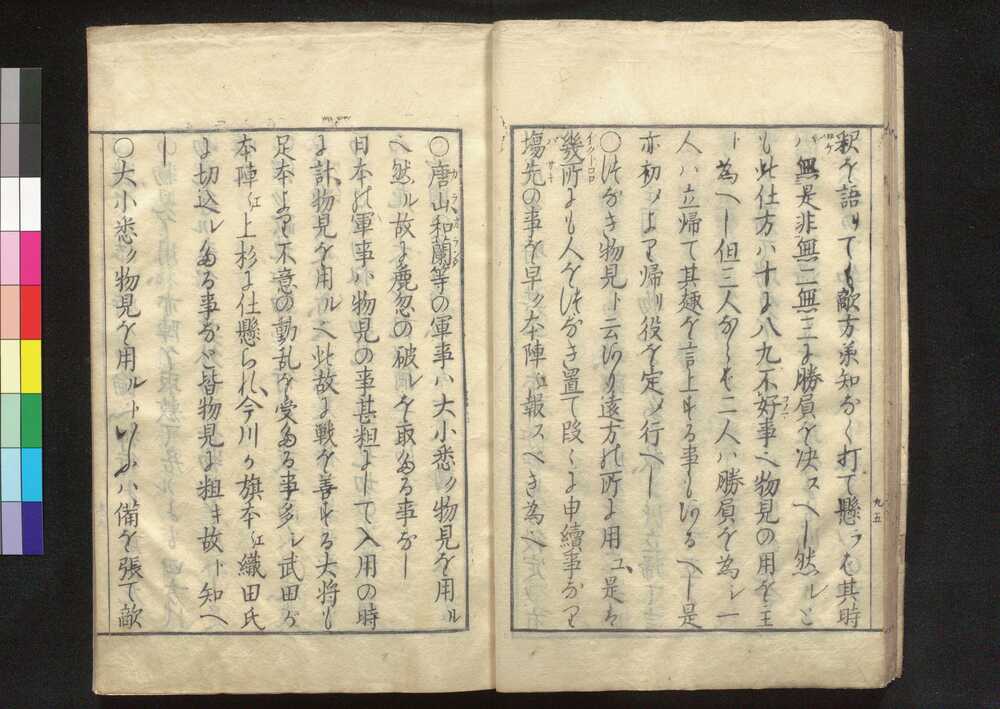 釈を語りても敵方承知なく打て懸ラば其時
ハ無是非無二無三に勝負を决スべし然ルと
も此仕方ハ十に八九不好事也物見の用を主
ト為べし但三人ならそ二人ハ勝負を為し一
人ハ立帰て其趣を言上する事も有るべし是
亦初メより帰り役を定メ行べし
○つなぎ物見ト云あり遠方の所に用ユ是は
幾所にも人をつなぎ置て段々に申續事なり
場先の事を早ク本陣江報スべき為也
九五
○唐山和蘭等の軍事ハ大小悉ク物見を用ル
也然ル故に麁忽の破レを取たる事なし
日本の軍事ハ物見の事甚粗にして入用の時
に計物見を用ル也此故に戦を善する大将も
足本より不意の動乱を受たる事多ル武田が
本陣江上杉に仕懸られ今川が旗本江織田氏
に切込レたる事など皆物見に粗キ故ト知べ
し
○大小悉ク物見を用ルトいふハ備を張て敵